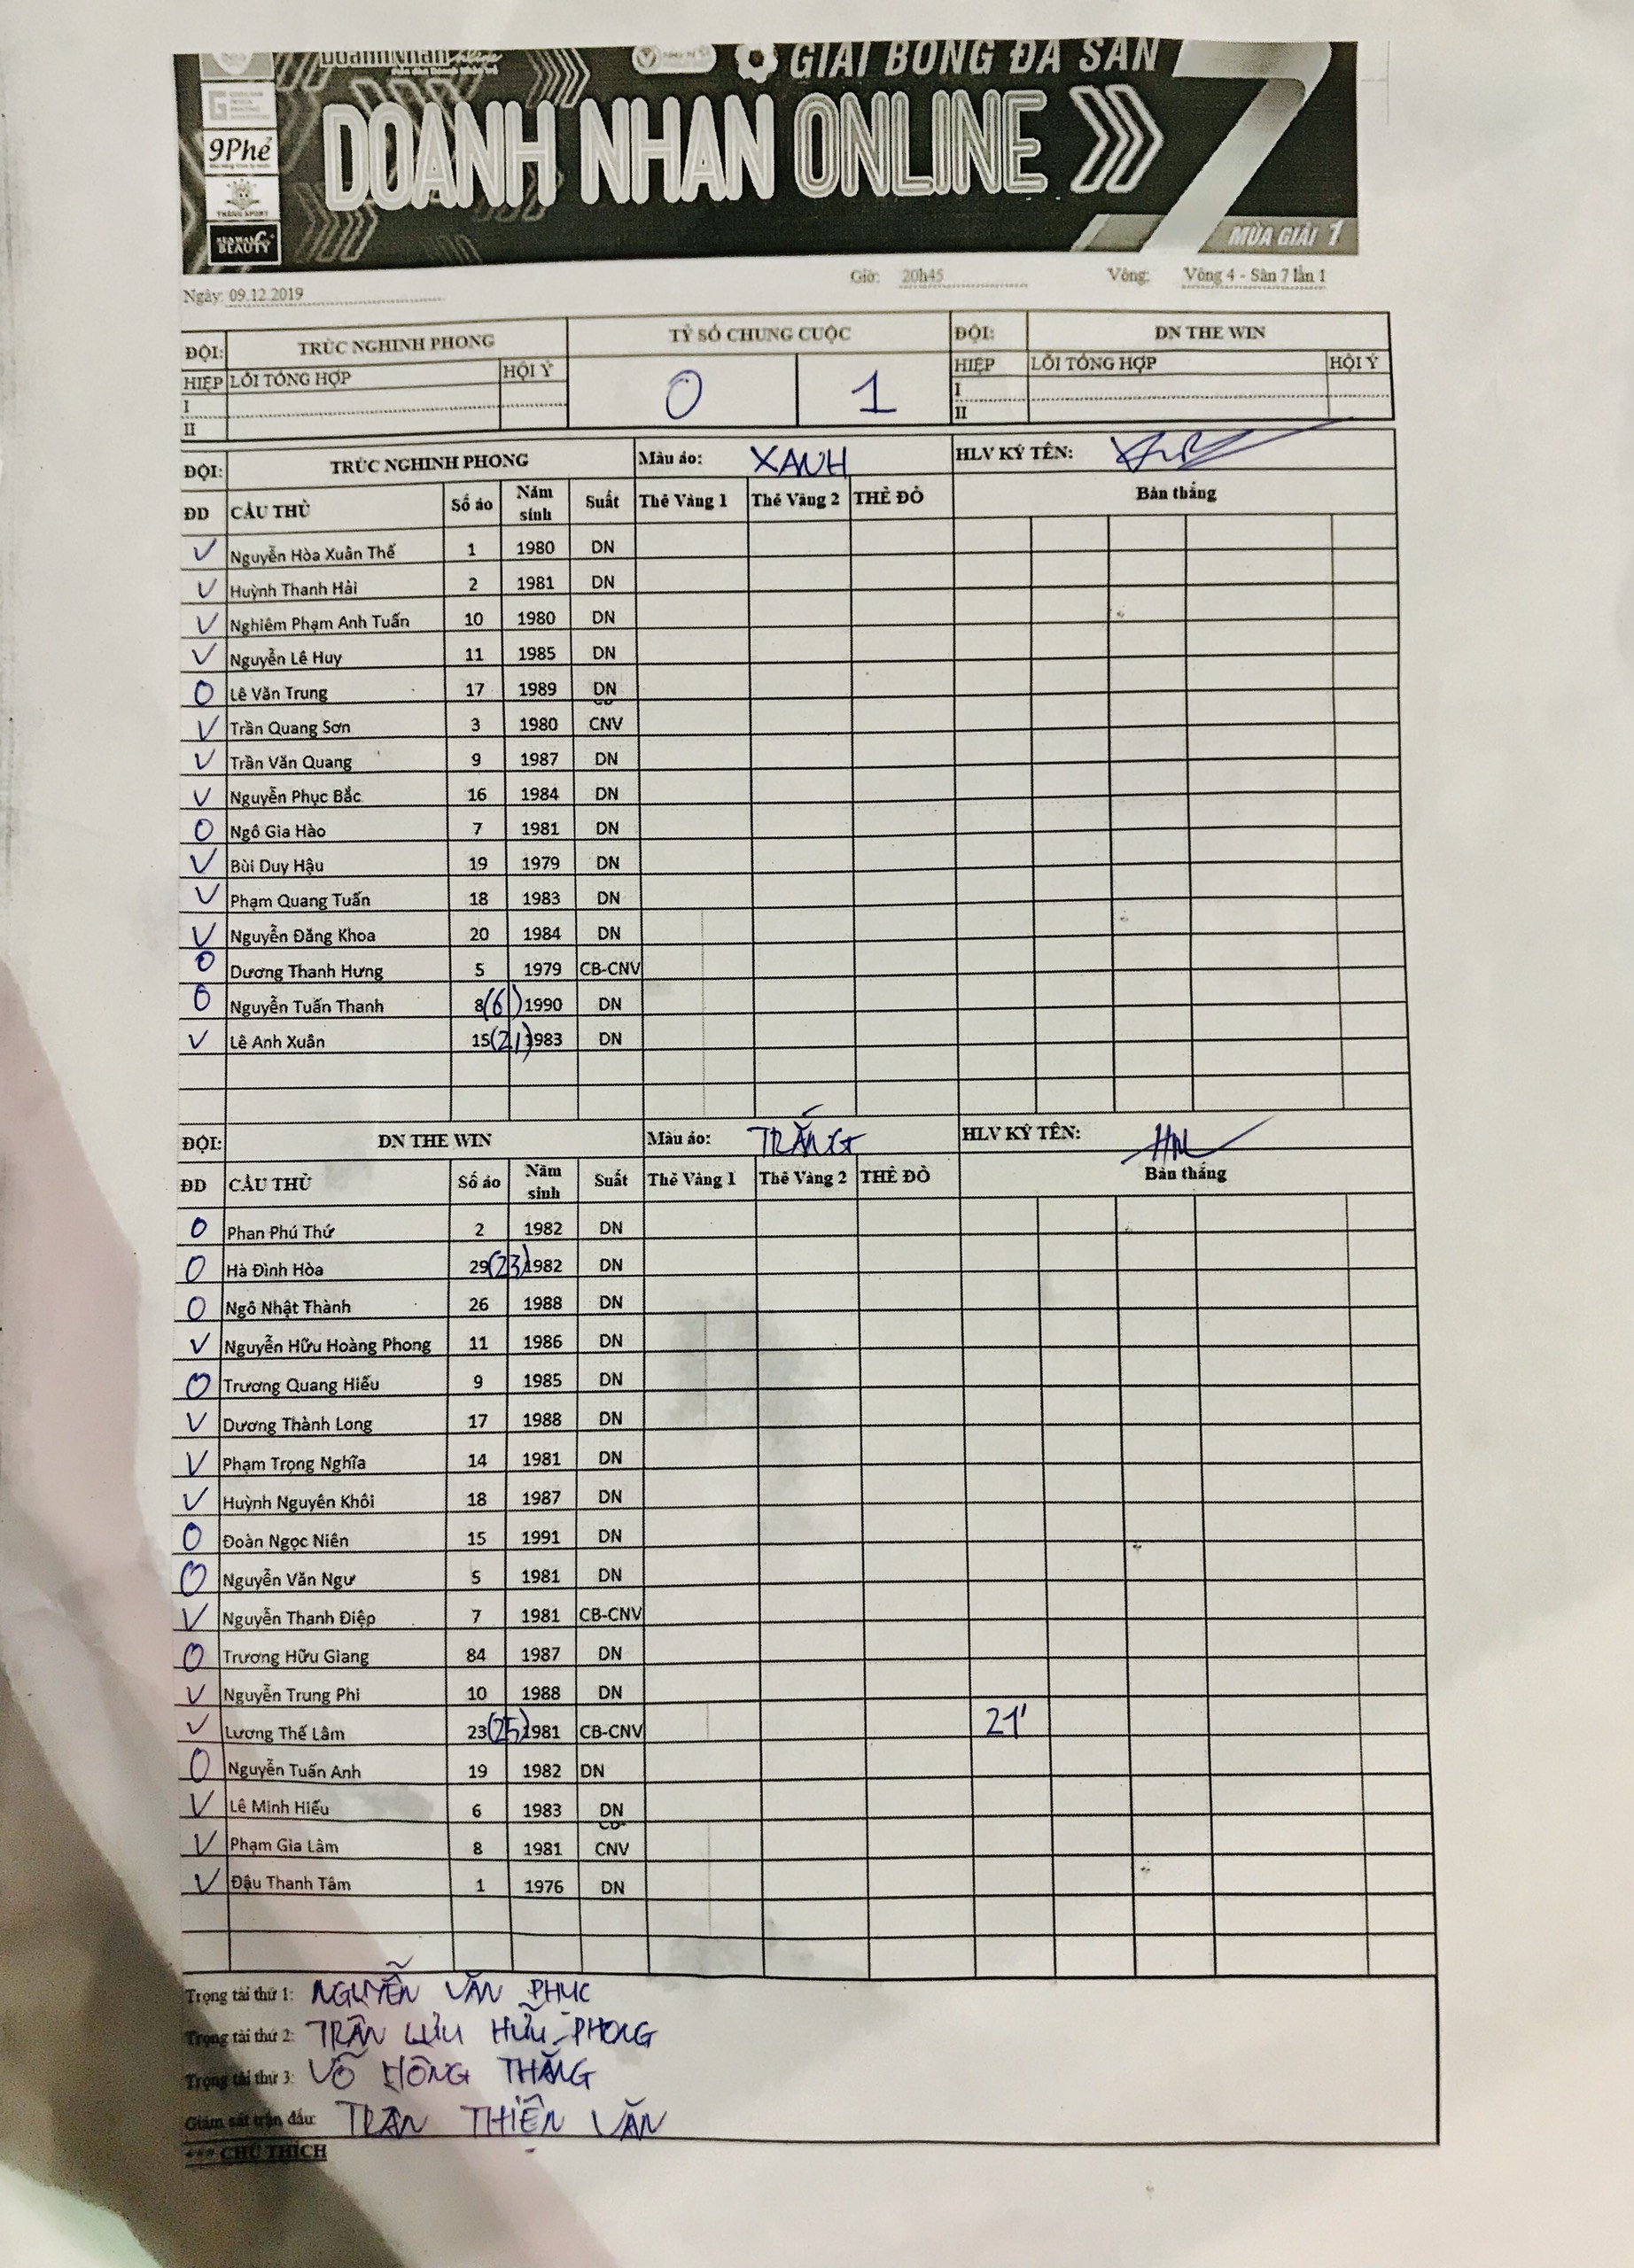 GIẢI BÓNG ĐÁ SÂN 7
9Phẻ
DOANH NHAN ONLINE
THANG SPORT
BEAUTY
MÙA GIẢI 1
Ngày: 09.12.2019 Giờ: 20h45 Vòng: Vòng 4 - Sân 7 lần 1
ĐỘI: TRÚC NGHINH PHONG TỶ SỐ CHUNG CUỘC ĐỘI: DN THE WIN
HIỆP LỖI TỔNG HỢP HỘI Ý 0 1 HIỆP LỖI TỔNG HỢP HỘI Ý
I I
II II
ĐỘI: TRÚC NGHINH PHONG Màu áo: XANH HLV KÝ TÊN:
ĐD CẦU THỦ Số áo Năm sinh Suất Thẻ Vàng 1 Thẻ Vàng 2 THẺ ĐỎ Bàn thắng
V Nguyễn Hòa Xuân Thế 1 1980 DN
V Huỳnh Thanh Hải 2 1981 DN
V Nghiêm Phạm Anh Tuấn 10 1980 DN
V Nguyễn Lê Huy 11 1985 DN
O Lê Văn Trung 17 1989 DN
V Trần Quang Sơn 3 1980 CNV
V Trần Văn Quang 9 1987 DN
V Nguyễn Phục Bắc 16 1984 DN
O Ngô Gia Hào 7 1981 DN
V Bùi Duy Hậu 19 1979 DN
V Phạm Quang Tuấn 18 1983 DN
V Nguyễn Đăng Khoa 20 1984 DN
O Dương Thanh Hưng 5 1979 CB-CNV
O Nguyễn Tuấn Thanh 8 (6) 1990 DN
V Lê Anh Xuân 15 (21) 1983 DN
ĐỘI: DN THE WIN Màu áo: TRẮNG HLV KÝ TÊN:
ĐD CẦU THỦ Số áo Năm sinh Suất Thẻ Vàng 1 Thẻ Vàng 2 THẺ ĐỎ Bàn thắng
O Phan Phú Thứ 2 1982 DN
O Hà Đình Hòa 29 (23) 1982 DN
O Ngô Nhật Thành 26 1988 DN
V Nguyễn Hữu Hoàng Phong 11 1986 DN
O Trương Quang Hiếu 9 1985 DN
V Dương Thành Long 17 1988 DN
V Phạm Trọng Nghĩa 14 1981 DN
V Huỳnh Nguyên Khôi 18 1987 DN
O Đoàn Ngọc Niên 15 1991 DN
O Nguyễn Văn Ngư 5 1981 DN
V Nguyễn Thanh Điệp 7 1981 CB-CNV
O Trương Hữu Giang 84 1987 DN
V Nguyễn Trung Phi 10 1988 DN
V Lương Thế Lâm 23 (25) 1981 CB-CNV 21'
O Nguyễn Tuấn Anh 19 1982 DN
V Lê Minh Hiếu 6 1983 DN
V Phạm Gia Lâm 8 1981 CNV
V Đậu Thanh Tâm 1 1976 DN
Trọng tài thứ 1: NGUYỄN VĂN PHỤC
Trọng tài thứ 2: TRẦN LƯU HỮU PHONG
Trọng tài thứ 3: VÕ HỒNG THẮNG
Giám sát trận đấu: TRẦN THIÊN VĂN
*** CHÚ THÍCH